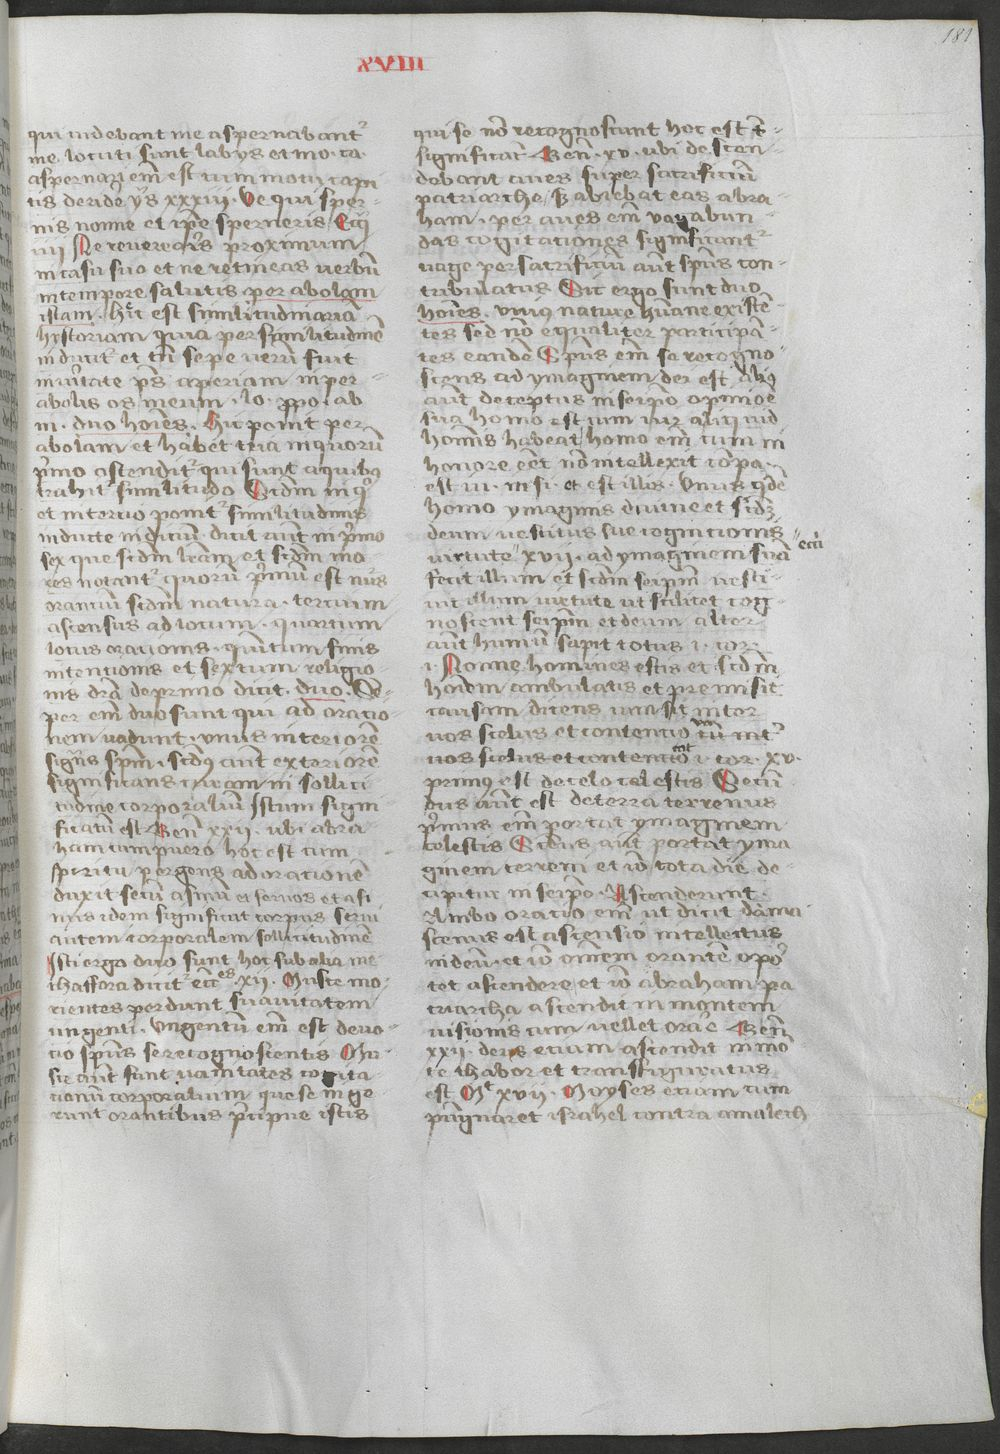 181
XVIII
qui uidebant me aspernabant᷒
me. locuti sunt labijs et mo. ca.
aspernari em̄ est cum motu capi
tis deride ys xxxiii. Ve qui sper-
nis nonne et ip̄e sperneris Ecci
iiii Ne reuerearis proximum
in casu suo et ne retineas uerbū
in tempore salutis parabolam
istam. hoc est similitudinariā
hystoriam quia per similitudinē
inducit᷒ et tn̄ sepe uerū fuit
in ueritate ps̄ aperiam in par-
abolis os meum. lo. ppo. ab
in. duo hoīes. hic ponit par
abolam et habet tria in quorū
primo ostendit᷒ qui sunt a quibus
trahit᷒ similitudo Scd̄m in quo
et in tercio ponit᷒ similitudinis
inducte iudicium. dicit aūt in primo
sex que scd̄m lr̄am et scd̄m mo
res notant᷒ quorū primū est nūs
orancium scd̄m natura. tercium
ascensus ad locum. quartum
locus oracionis. quintum finis
intencionis et sextum religio
nis dr̄a de primo dicit. duo. Se-
per em̄ duo sunt qui ad oracio
nem uadunt. unus interiorē
signās spm̄. scd̄us aūt exteriorē
significans carnem in sollici
tudine corporaliū Istum signi
ficatū est Gen̄ xxii. ubi abra
ham cum puero hoc est cum
spiritu pergens ad oracionē
duxit secū asinū et seruos et asi
nus idem significat corpus serui
autem corporalem sollicitudinē
Isti ergo duo sunt hoc sub alia me
thaffora dicit᷒ ecc̄es xii. Musce mo-
rientes perdunt suauitatem
ungenti. Ungentū em̄ est deuo-
cio spūs se recognoscentis Mu-
sce aūt sunt uanitates cogita
cionū corporalium que se inge
runt orantibus p̄cipue istis
qui se nō recognoscunt hoc est t-
significat᷒ Gen̄. xv. ubi descen
debant aues super sacrificiū
patriarche Sȝ abiebat eas abra
ham. per aues em̄ uagabun
das cogitationes significant᷒
uage per sacrificiū aūt spūs con
tribulatus Dic ergo sunt duo
hoīes. unius nature hūane existē
tes sed nō equaliter participā
tes eandē Spūs em̄ se recogno
scens ad ymaginem dei est. alius
aūt deceptus in seipō opinione
sua homo est cum uix aliquid
hominis habeat homo em̄ cum in
honore eēt nō intellexit cō pa.
est iu. in si. et est illis. unus quidē
homo ymaginis diuine et scd̄m
deum uestitus sue cognicionis
uirtute xvii. ad ymaginem suā
ecci
fecit illum et scd̄m seipm̄ uesti
uit illum uirtute ut scilicet cog
noscent seipm̄ et deum alter
aūt humū sapit totus i. cor
i. Nonne homines estis et scd̄m
hoīem ambulatis et premisit
causam dicens una sit inter
uos scelus et contencio cū int᷒
uos scelus et contencio i. cor. xv.
primus est de celo celestis Secun
dus aūt est de terra terrenus
primus em̄ portat ymaginem
celestis Scd̄us aūt portat yma
ginem terreni et iō tota die de
cipitur in seipō. Ascenderunt.
Ambo oracio em̄ ut dicit dama
scenus est ascensio intellectus
in deū. et iō omēm orantē opor
tet ascendere et iō abraham pa
triarcha ascendit in montem
uisionis cum uellet orare Gen̄
xxii. deus etiam ascendit in mō
te thabor et transfiguratus
est Mt xvii. Moyses etiam cum
pugnaret israhel contra amalech